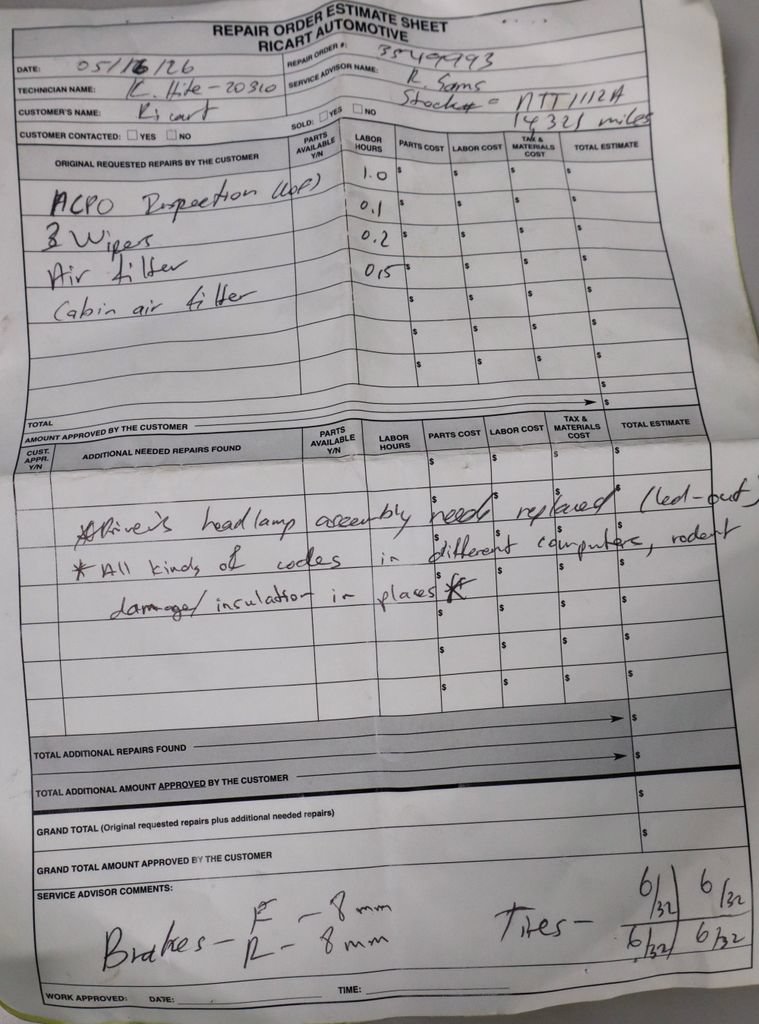 REPAIR ORDER ESTIMATE SHEET
RICART AUTOMOTIVE
DATE: 05/16/26
REPAIR ORDER #: 3549993
TECHNICIAN NAME: K. Hite - 20310
SERVICE ADVISOR NAME: R. Sams
CUSTOMER'S NAME: Ricart
Stock# = NTT1112A
14,321 miles
CUSTOMER CONTACTED: YES NO
SOLD: YES NO
ORIGINAL REQUESTED REPAIRS BY THE CUSTOMER PARTS AVAILABLE Y/N LABOR HOURS PARTS COST LABOR COST TAX & MATERIALS COST TOTAL ESTIMATE
ACPO Inspection (LOF) 1.0 $ $ $ $
3 Wipers 0.1 $ $ $ $
Air filter 0.2 $ $ $ $
Cabin air filter 0.5 $ $ $ $
$ $ $ $
$ $ $ $
$ $ $ $
TOTAL $
AMOUNT APPROVED BY THE CUSTOMER $
CUST. APPR. Y/N ADDITIONAL NEEDED REPAIRS FOUND PARTS AVAILABLE Y/N LABOR HOURS PARTS COST LABOR COST TAX & MATERIALS COST TOTAL ESTIMATE
$ $ $ $
*Driver's headlamp assembly needs replaced (led-out)
* All kinds of codes in different computers, rodent
damage/insulation in places *
$ $ $ $
$ $ $ $
$ $ $ $
TOTAL ADDITIONAL REPAIRS FOUND $
TOTAL ADDITIONAL AMOUNT APPROVED BY THE CUSTOMER $
GRAND TOTAL (Original requested repairs plus additional needed repairs) $
GRAND TOTAL AMOUNT APPROVED BY THE CUSTOMER $
SERVICE ADVISOR COMMENTS:
Brakes - F - 8 mm
R - 8 mm
Tires - 6/32 6/32
6/32 6/32
WORK APPROVED: DATE: TIME: